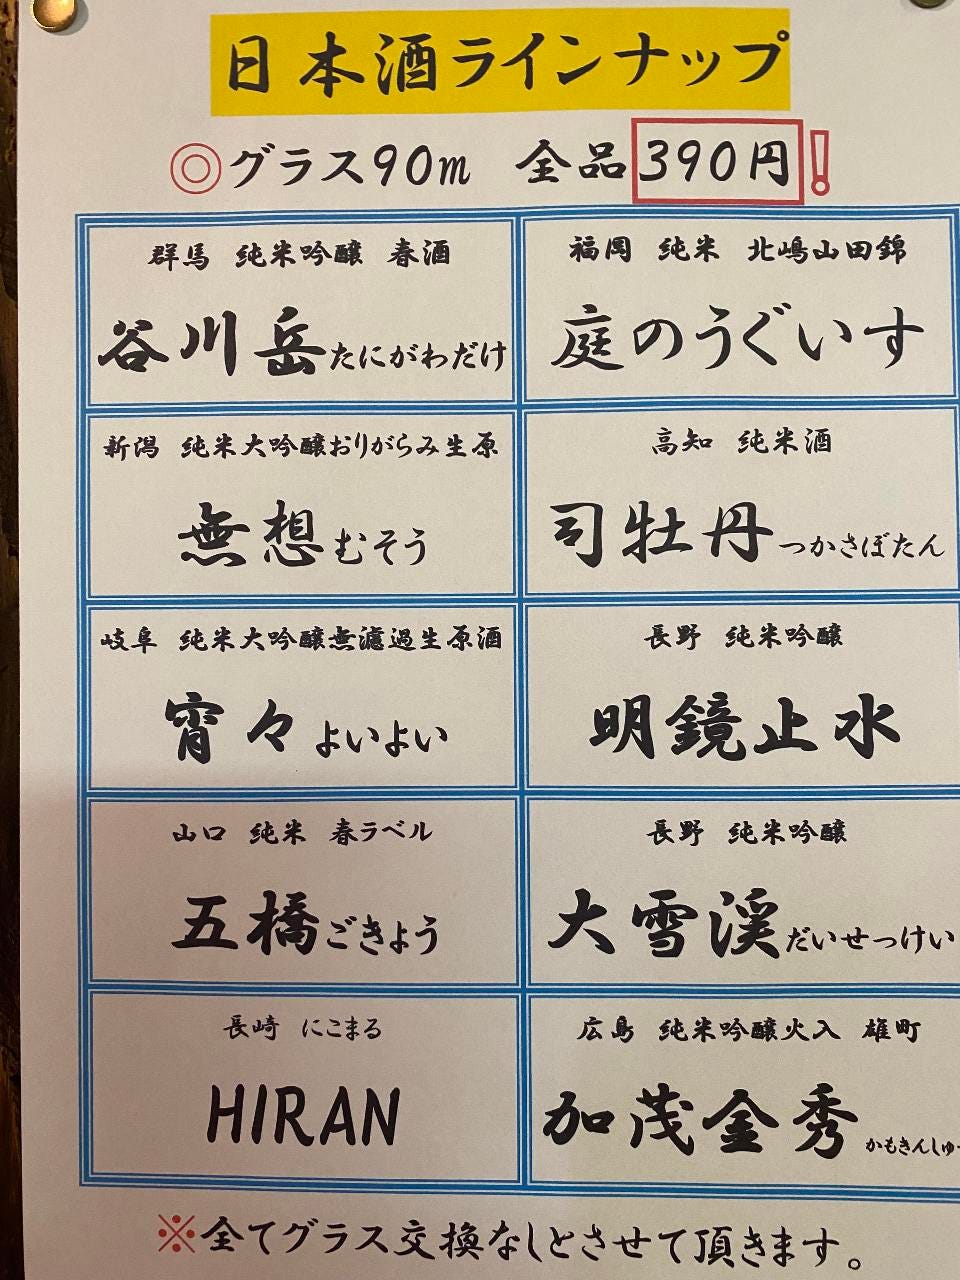 日本酒ラインナップ
◎グラス90m 全品390円!
群馬 純米吟醸 春酒
谷川岳たにがわだけ
福岡 純米 北嶋山田錦
庭のうぐいす
新潟 純米大吟醸おりがらみ生原
無想むそう
高知 純米酒
司牡丹つかさぼたん
岐阜 純米大吟醸無濾過生原酒
宵々よいよい
長野 純米吟醸
明鏡止水
山口 純米 春ラベル
五橋ごきょう
長野 純米吟醸
大雪渓だいせっけい
長崎 にこまる
HIRAN
広島 純米吟醸火入 雄町
加茂金秀かもきんしゅ
※全てグラス交換なしとさせて頂きます。